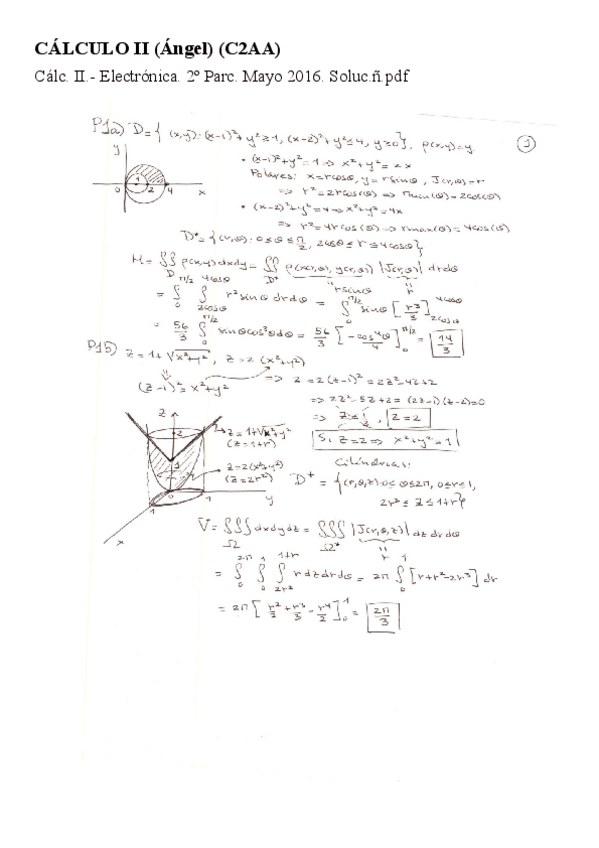 CÁLCULO II (Ángel) (C2AA)
Cálc. II.- Electrónica. 2º Parc. Mayo 2016. Soluc.ñ.pdf
P1a) D={(x,y):(x-1)²+y²≥1, (x-2)²+y²≤4, y≥0}, ρ(x,y)=y
1
y
0 1 2 4 x
• (x-1)²+y²=1 ⇒ x²+y²=2x
Polares: x=rcosθ, y=rsinθ, J(r,θ)=r
⇒ r²=2rcos(θ) ⇒ rmin(θ)=2cos(θ)
• (x-2)²+y²=4 ⇒ x²+y²=4x
⇒ r²=4rcos(θ) ⇒ rmax(θ)=4cos(θ)
D*={(r,θ): 0≤θ≤π/2, 2cosθ≤r≤4cosθ}
M=∬_D ρ(x,y)dxdy=∬_D* ρ(x(r,θ),y(r,θ)) |J(r,θ)| drdθ
rsinθ r
=∫_0^{π/2} ∫_{2cosθ}^{4cosθ} r²sinθ drdθ = ∫_0^{π/2} sinθ [r³/3]_{2cosθ}^{4cosθ}
= 56/3 ∫_0^{π/2} sinθcos³θdθ = 56/3 [-cos⁴θ/4]_0^{π/2} = 14/3
P1b) z=1+√x²+y², z=2(x²+y²)
(z-1)²=x²+y² ⇒ z=2(z-1)²=2z²-4z+2
⇒ 2z²-5z+2=(2z-1)(z-2)=0
⇒ z=2
Si z=2 ⇒ x²+y²=1
z
2
z=1+√x²+y²
(z=1+r)
1
z=2(x²+y²)
(z=2r²)
0 1 y
1
x
Cilíndricas:
D*={(r,θ,z): 0≤θ≤2π, 0≤r≤1,
2r²≤z≤1+r}
V=∭_Ω dxdydz=∭_Ω* |J(r,θ,z)| dz dr dθ
r
=∫_0^{2π} ∫_0^1 ∫_{2r²}^{1+r} r dz dr dθ = 2π ∫_0^1 [r+r²-2r³] dr
=2π [r²/2+r³/3-r⁴/2]_0^1 = 2π/3